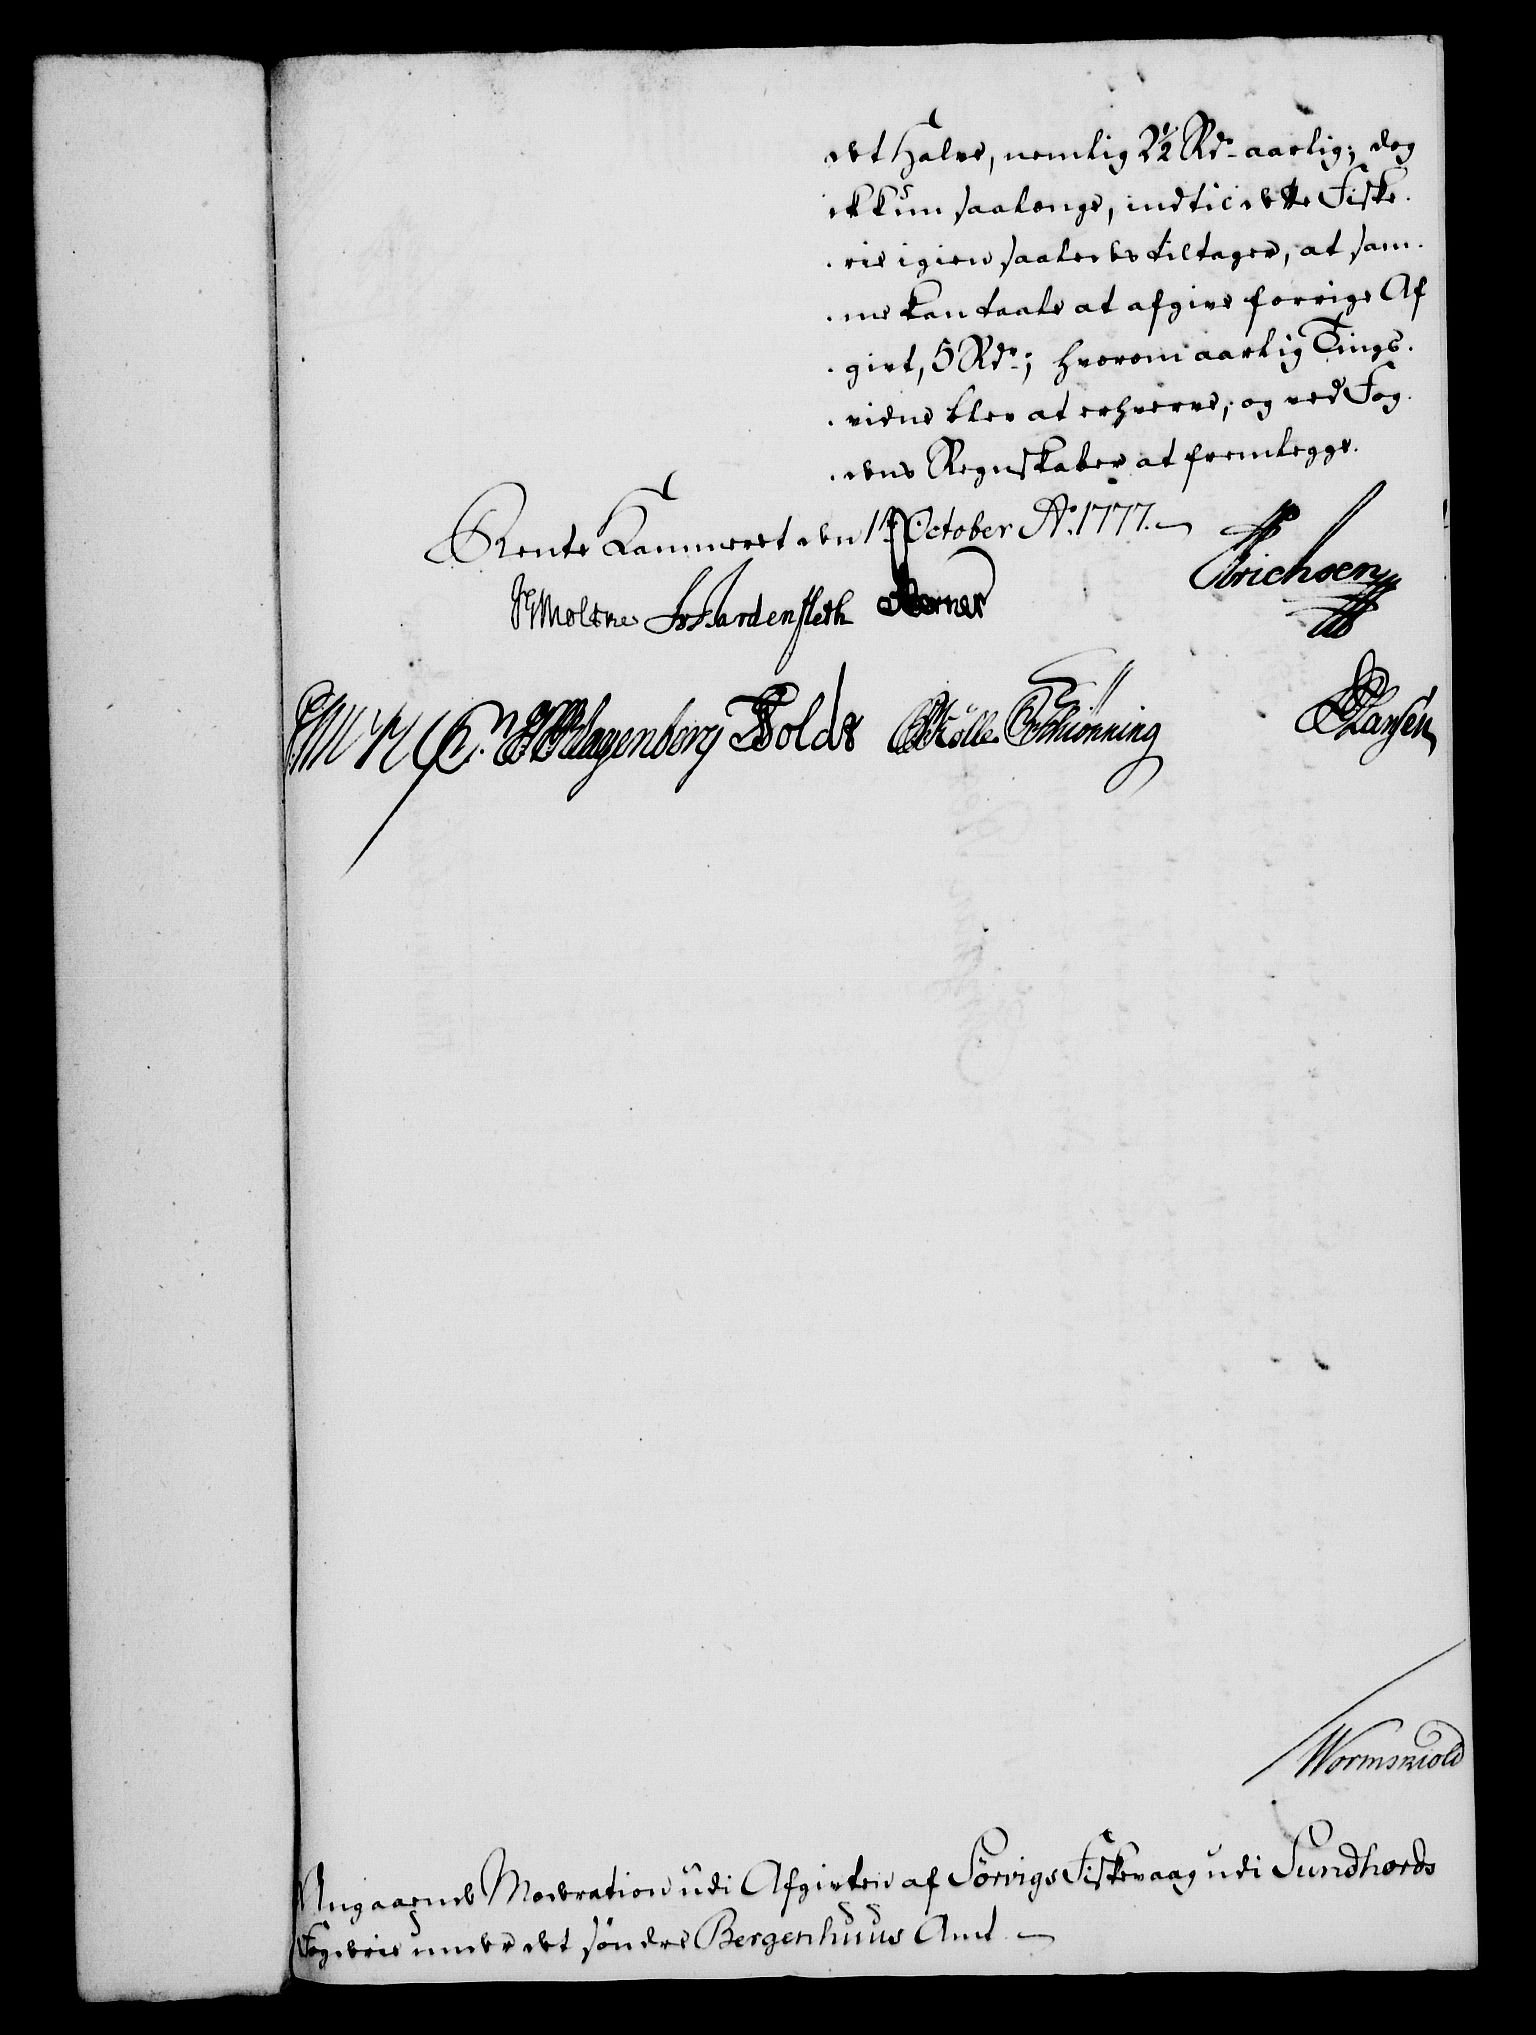 det Halve, nemlig 2½ Rd. aarlig; dog
ikkun saalænge, indtil dette Fiske-
rie igien saaledes tiltager, at sam-
me kan taale at afgive forrige Af-
givt, 5 Rd.; hvorom aarlig Tings-
vidne blev at erhverve, og ved Fog-
dens Regnskaber at fremlegge.
Rente Kammeret den 14 October Ao. 1777.
JGMoltke Hardenfleth Erichsen
Klagenberg Holde Kölle Schiönning Hansen
Wormskiold
Angaaende Moderation udi Afgivten af Sörvigs Fiskevaag udi Sundhords
Fogderie under det söndre Bergenhuus Amt.